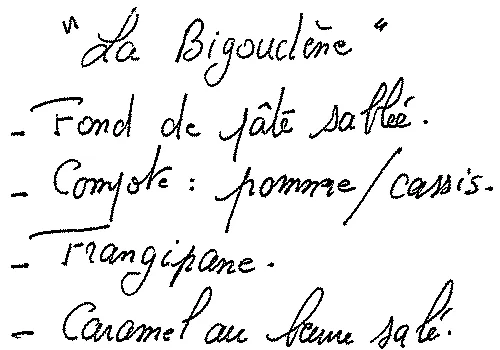 "La Bigoudène"
- Fond de pâte sablée.
- Compote : pomme/cassis.
- Frangipane.
- Caramel au beurre salé.